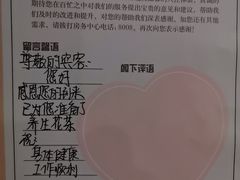 期待您在百忙之中对我们的服务提出宝贵的意见和建议，帮助我
们及时的改进和提升。对您的帮助我们深表感谢。如您还有其他
需求，请拨打房务中心电话：8008，再次向您表示感谢！
留言酷语
阁下评语
尊敬的宾客：
您好
感恩您的到来
已为您准备了
养生花茶
祝：
身体健康
工作顺利